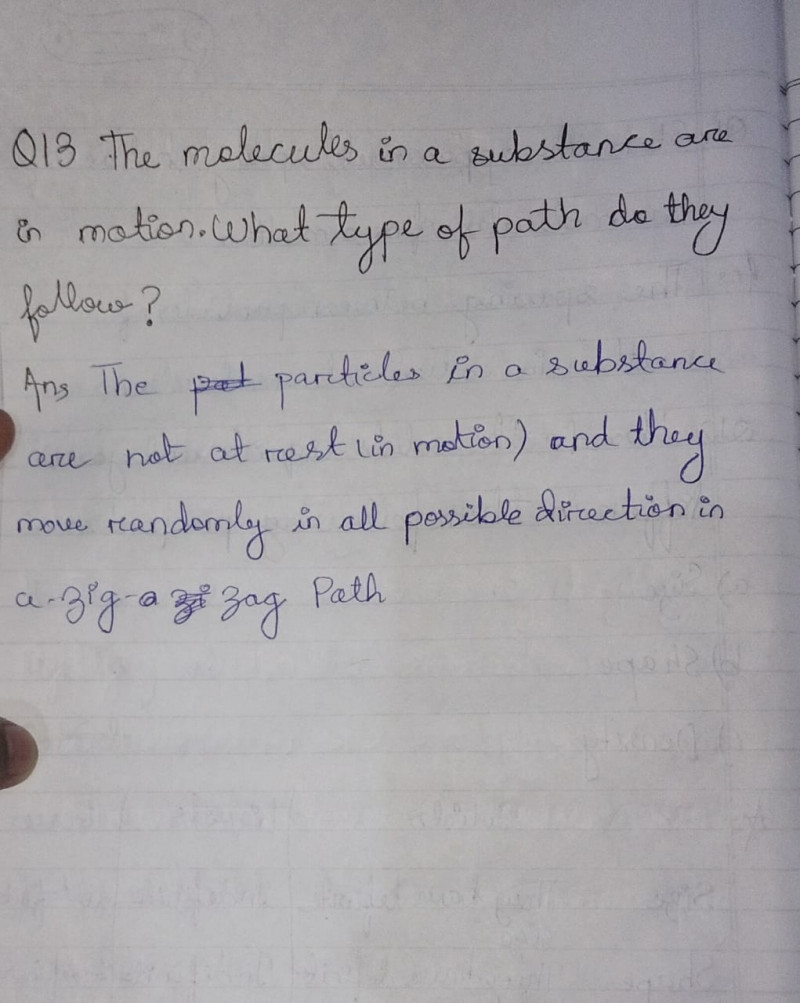 Q13 The molecules in a substance are
in motion. What type of path do they
follow?
Ans The particles in a substance
are not at rest (in motion) and they
move randomly in all possible direction in
a-zig-a zag Path